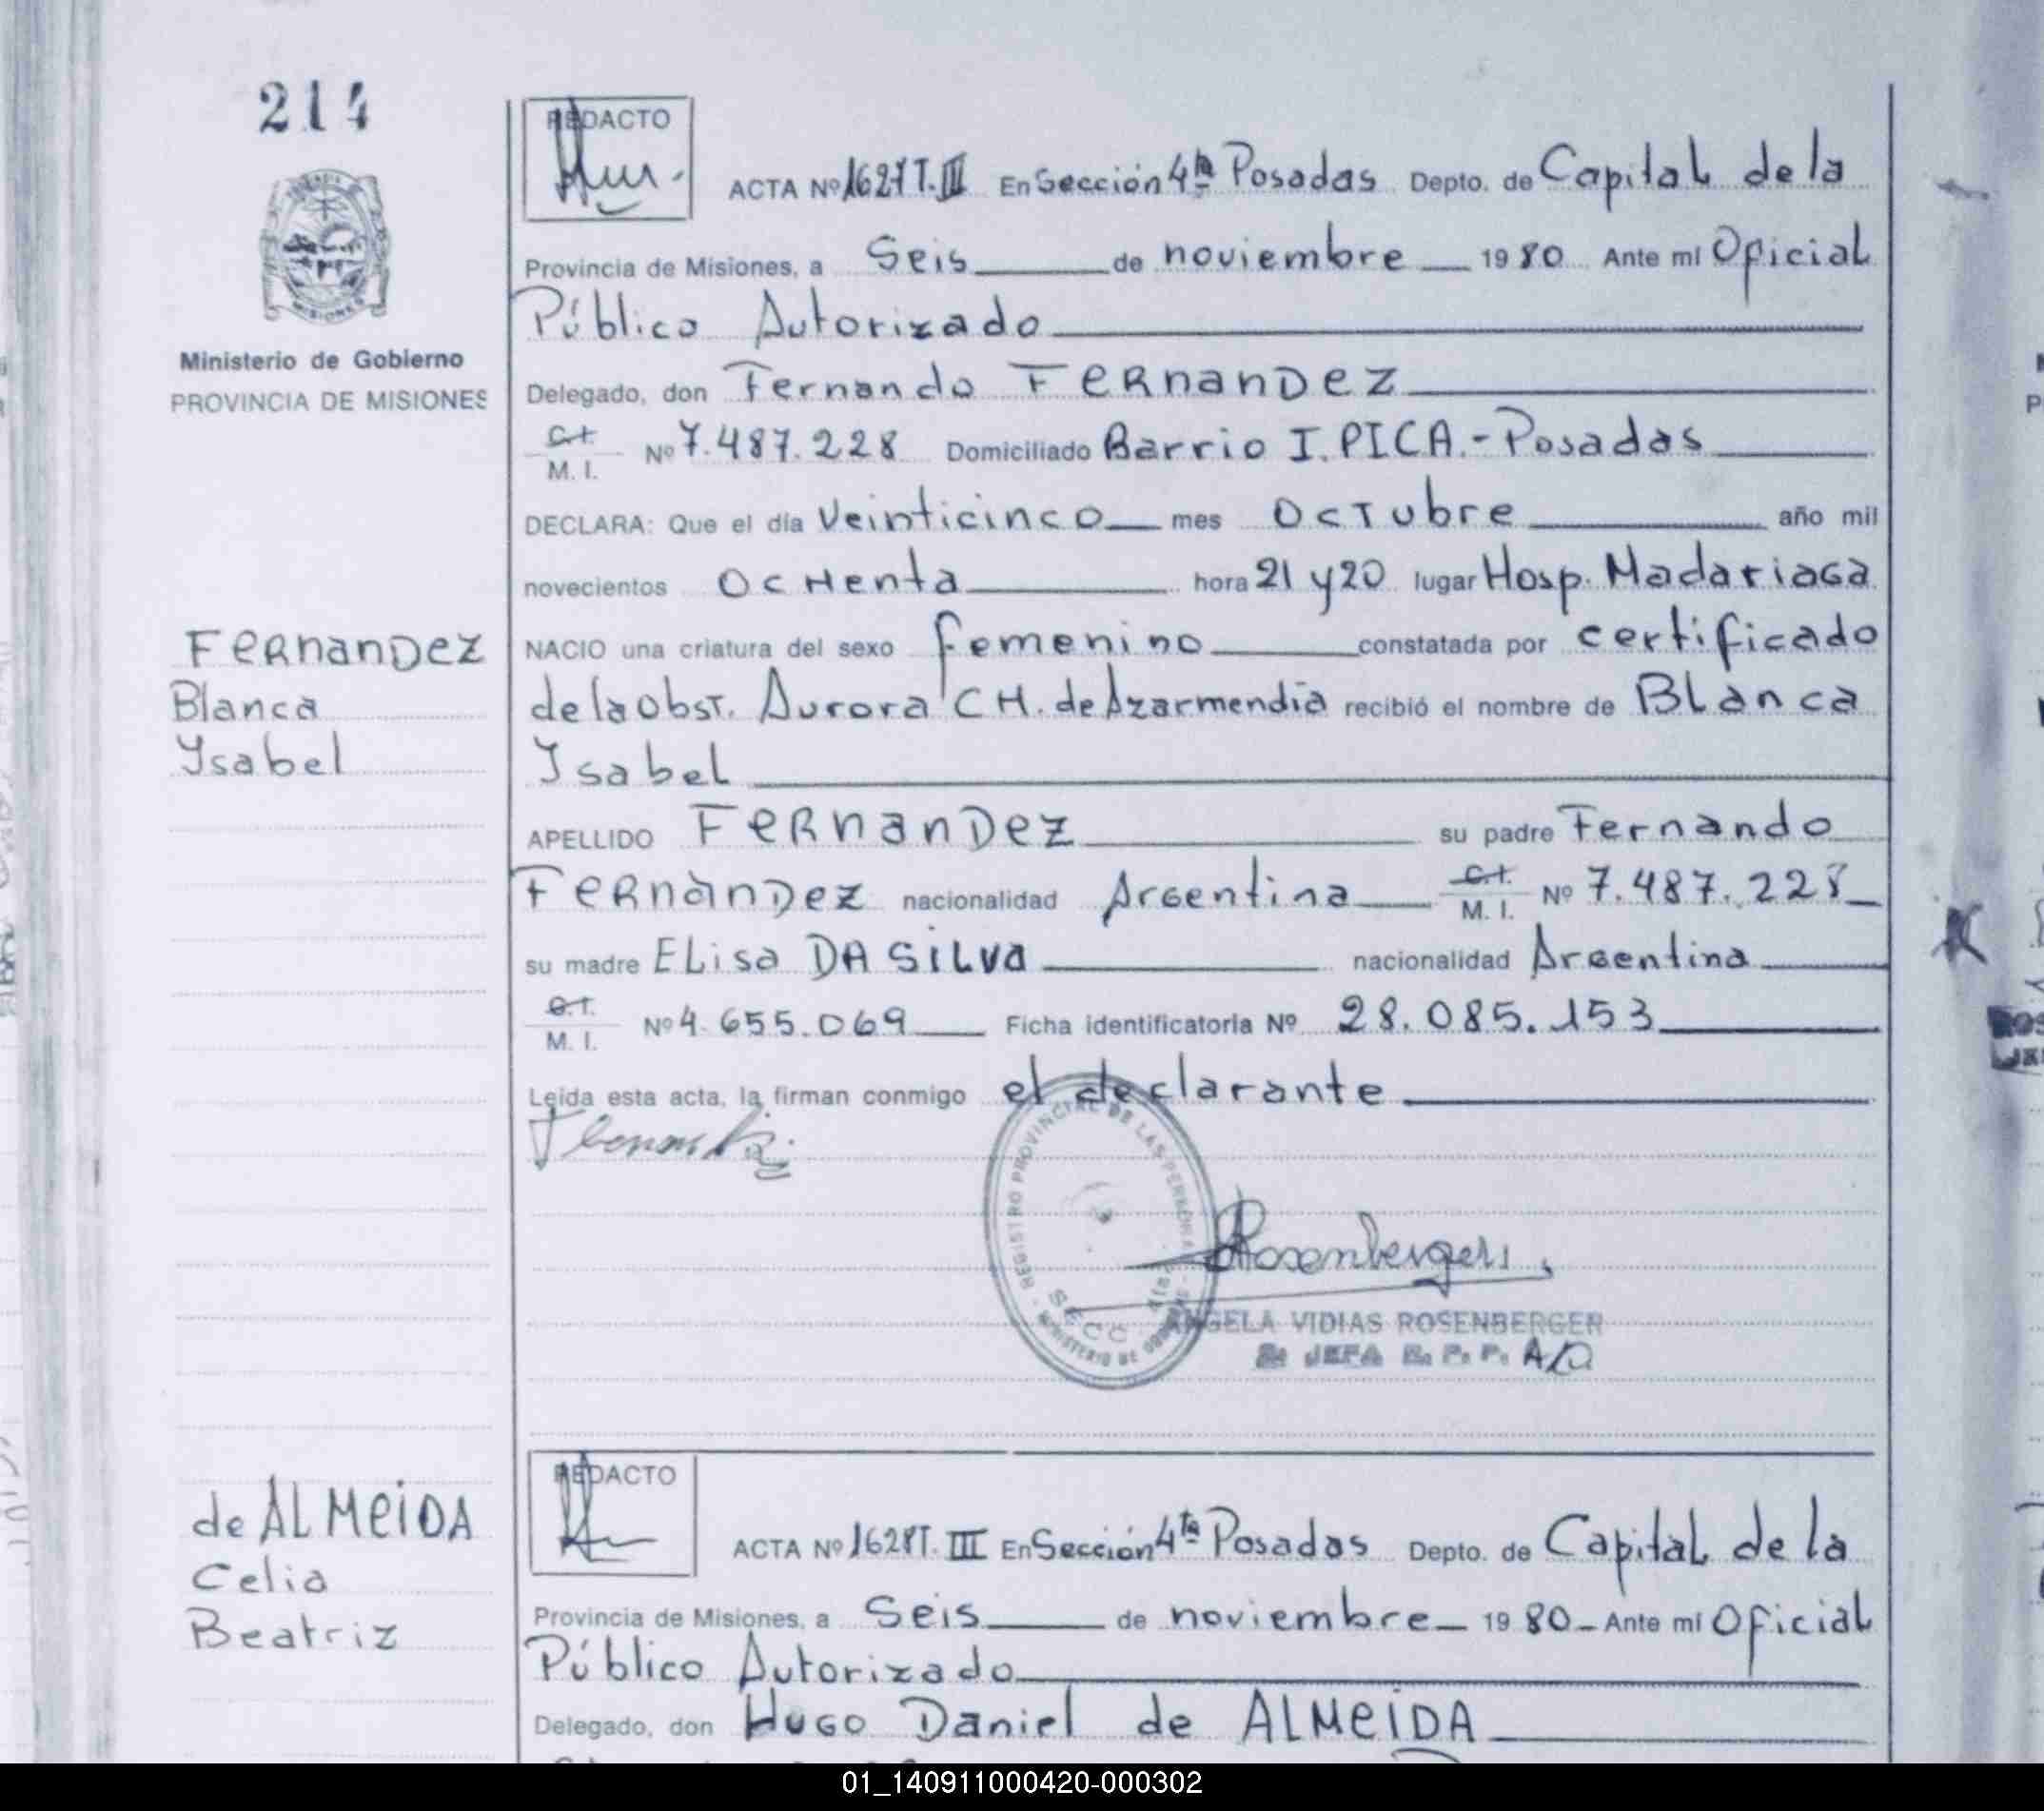 214
REDACTO
ACTA Nº 1627 T. III En Sección 4ta Posadas Depto. de Capital de la
Provincia de Misiones, a Seis de noviembre 1980 Ante mí Oficial
Público Autorizado
Ministerio de Gobierno
PROVINCIA DE MISIONES
Delegado, don Fernando FERNANDEZ
C.I. M. I. Nº 7.487.228 Domiciliado Barrio I. PICA.- Posadas
DECLARA: Que el día Veinticinco mes Octubre año mil
novecientos Ochenta hora 21 y 20 lugar Hosp. Madariaga
FERNANDEZ
Blanca
Ysabel
NACIO una criatura del sexo femenino constatada por certificado
de la Obst. Aurora CH. de Azarmendia recibió el nombre de Blanca
Ysabel
APELLIDO FERNANDEZ su padre Fernando
FERNANDEZ nacionalidad Argentina C.I. M. I. Nº 7.487.228
su madre Elisa DA SILVA nacionalidad Argentina
C.I. M. I. Nº 4.655.069 Ficha identificatoria Nº 28.085.153
Leída esta acta, la firman conmigo el declarante
REGISTRO PROVINCIAL DE LAS PERSONAS
MINISTERIO DE GOBIERNO
SECC 4ta
Rosenberger
ANGELA VIDIAS ROSENBERGER
JEFA R. P. P. A/C
de ALMEIDA
Celia
Beatriz
REDACTO
ACTA Nº 1628 T. III En Sección 4ta Posadas Depto. de Capital de la
Provincia de Misiones, a Seis de noviembre 1980 Ante mí Oficial
Público Autorizado
Delegado, don Hugo Daniel de ALMEIDA
01_140911000420-000302